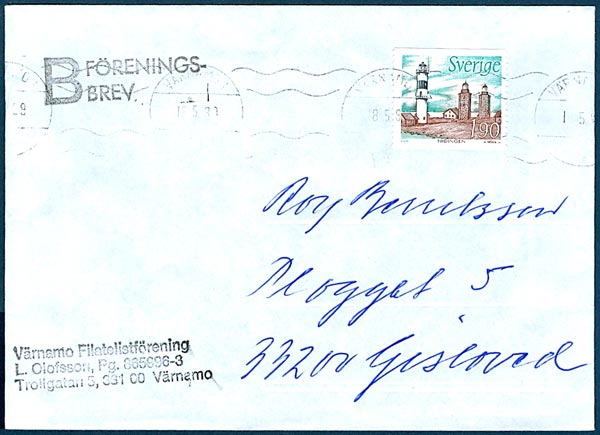 B FÖRENINGS-
BREV.
Sverige
1.90
VÄRNAMO
8.5.89
Roy Berntsson
Plogget 5
332 00 Gislaved
Värnamo Filatelistförening
L. Olofsson, Pg. 865996-3
Trollgatan 5, 331 00 Värnamo